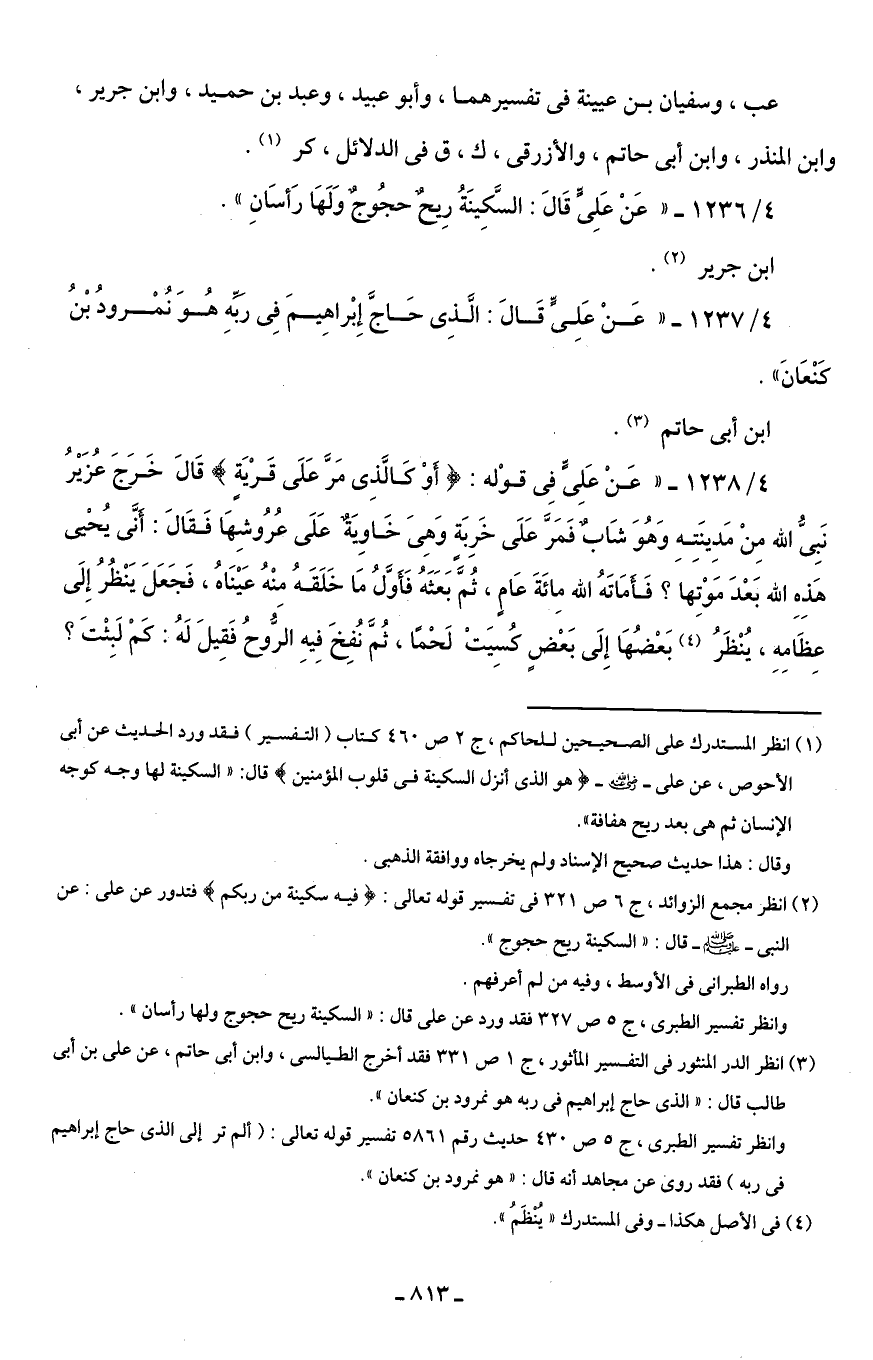 عب ، وسفيان بن عيينة فى تفسيرهما ، وأبو عبيد ، وعبد بن حميد ، وابن جرير ،
وابن المنذر ، وابن أبى حاتم ، والأزرقى ، ك ، ق فى الدلائل ، كر (١) .
٤/ ١٢٣٦ ـ « عَنْ عَلِىٍّ قَالَ : السَّكِينَةُ رِيحٌ حجُوجٌ وَلَهَا رَأسَانِ » .
ابن جرير (٢) .
٤/ ١٢٣٧ ـ « عَنْ عَلِىٍّ قَالَ : الَّذِى حَاجَّ إِبْراهِيمَ فِى رَبِّهِ هُوَ نُمْرودُ بْنُ
كَنْعَانَ» .
ابن أبى حاتم (٣) .
٤/ ١٢٣٨ ـ « عَنْ عَلِىٍّ فِى قوْلِه : ﴿ أَوْ كَالَّذِى مَرَّ عَلَى قَرْيَةٍ ﴾ قَالَ خَرَجَ عُزَيْرُ
نَبِىُّ الله مِنْ مَدِينَتِهِ وَهُوَ شَابٌ فَمَرَّ عَلَى خَرِبَةٍ وَهِىَ خَاوِيَةٌ عَلَى عُرُوشِهَا فَقَالَ : أَنَّى يُحْيِى
هَذِهِ الله بَعْدَ مَوْتِها ؟ فَأَمَاتَهُ الله مِائَةَ عَامٍ ، ثُمَّ بَعَثَهُ فَأَوَّلُ مَا خَلَقَهُ مِنْهُ عَيْنَاهُ ، فَجَعَلَ يَنْظُرُ إِلَى
عِظَامِهِ ، يُنْظَرُ (٤) بَعْضُهَا إِلَى بَعْضٍ كُسِيَتْ لَحْمًا ، ثُمَّ نُفِخَ فِيهِ الرُّوحُ فَقِيلَ لَهُ : كَمْ لَبِثْتَ ؟
(١) انظر المستدرك على الصحيحين للحاكم ، ج ٢ ص ٤٦٠ كتاب ( التفسير ) فقد ورد الحديث عن أبى
الأحوص ، عن على ـ رضي الله عنه ـ ﴿ هو الذى أنزل السكينة فى قلوب المؤمنين ﴾ قال: « السكينة لها وجه كوجه
الإنسان ثم هى بعد ريح هفافة».
وقال : هذا حديث صحيح الإسناد ولم يخرجاه ووافقة الذهبى .
(٢) انظر مجمع الزوائد ، ج ٦ ص ٣٢١ فى تفسير قوله تعالى : ﴿ فيه سكينة من ربكم ﴾ فتدور عن على : عن
النبى ـ ﷺ ـ قال : « السكينة ريح حجوج ».
رواه الطبرانى فى الأوسط ، وفيه من لم أعرفهم .
وانظر تفسير الطبرى ، ج ٥ ص ٣٢٧ فقد ورد عن على قال : « السكينة ريح حجوج ولها رأسان » .
(٣) انظر الدر المنثور فى التفسير المأثور ، ج ١ ص ٣٣١ فقد أخرج الطيالسى ، وابن أبى حاتم ، عن على بن أبى
طالب قال : « الذى حاج إبراهيم فى ربه هو نمرود بن كنعان ».
وانظر تفسير الطبرى ، ج ٥ ص ٤٣٠ حديث رقم ٥٨٦١ تفسير قوله تعالى : ( ألم تر إلى الذى حاج إبراهيم
فى ربه ) فقد روى عن مجاهد أنه قال : « هو نمرود بن كنعان ».
(٤) فى الأصل هكذا ـ وفى المستدرك « يُنْظَمُ ».
ـ ٨١٣ ـ